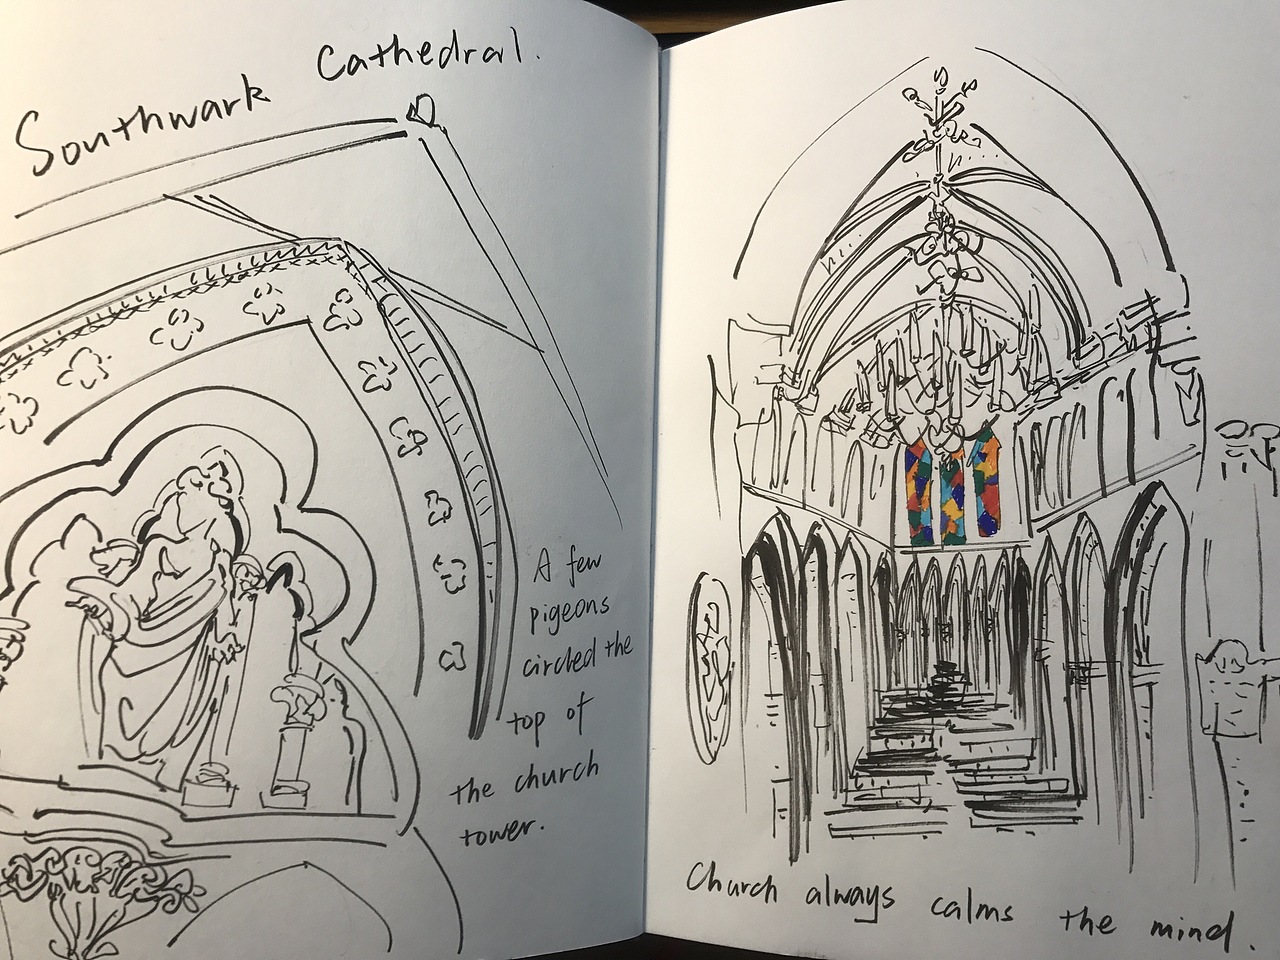 Southwark Cathedral.
A few
pigeons
circled the
top of
the church
tower.
Church always calms the mind.